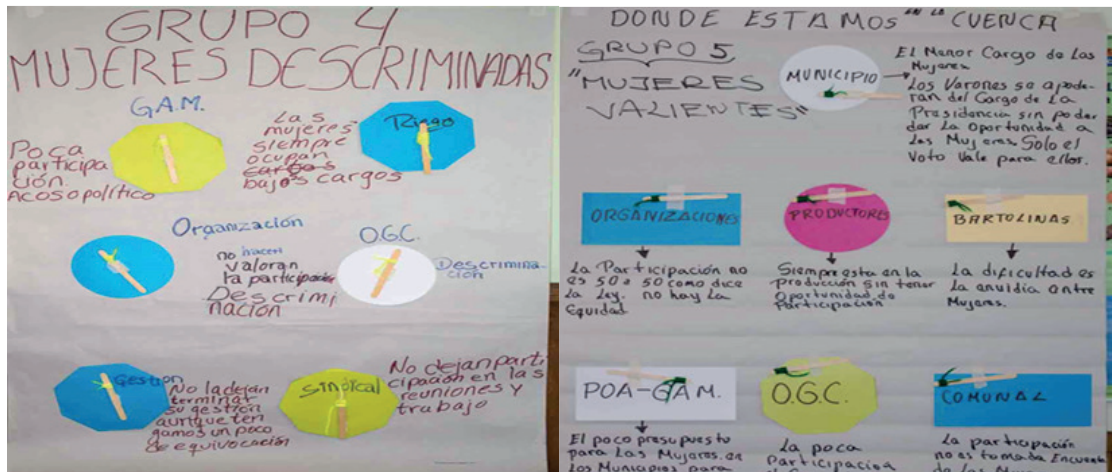 GRUPO 4
MUJERES DESCRIMINADAS
G.A.M.
Poca
participa
ción.
Acoso político
Las
mujeres
siempre
ocupan
cargos
bajos cargos
Riego
Organización
no hacen
valoran
la participación
Descrimi
nación
O.G.C.
Descrimina-
ción
Gestion
No la dejan
terminar
su gestión
aunque ten
gamos un poco
de equivocación
Sindical
No dejan parti
cipación en las
reuniones y
trabajo
DONDE ESTAMOS EN LA CUENCA
GRUPO 5
"MUJERES
VALIENTES"
MUNICIPIO
El Menor Cargo de Las
Mujeres
Los Varones se apode-
ran del Cargo de La
Presidencia sin poder
dar La Oportunidad a
Las Mujeres Solo el
Voto Vale para ellos.
ORGANIZACIONES
La Participación no
es 50 a 50 como dice
La Ley. no hay La
Equidad
PRODUCTORES
Siempre esta en la
producción sin tener
Oportunidad de
Participación
BARTOLINAS
La dificultad es
La envidia entre
Mujeres.
POA-GAM.
El poco presupuesto
para Las Mujeres en
Los Municipios para
O.G.C.
La poca
Participacion
COMUNAL
La participación
no es tomada Encuenta
de Las